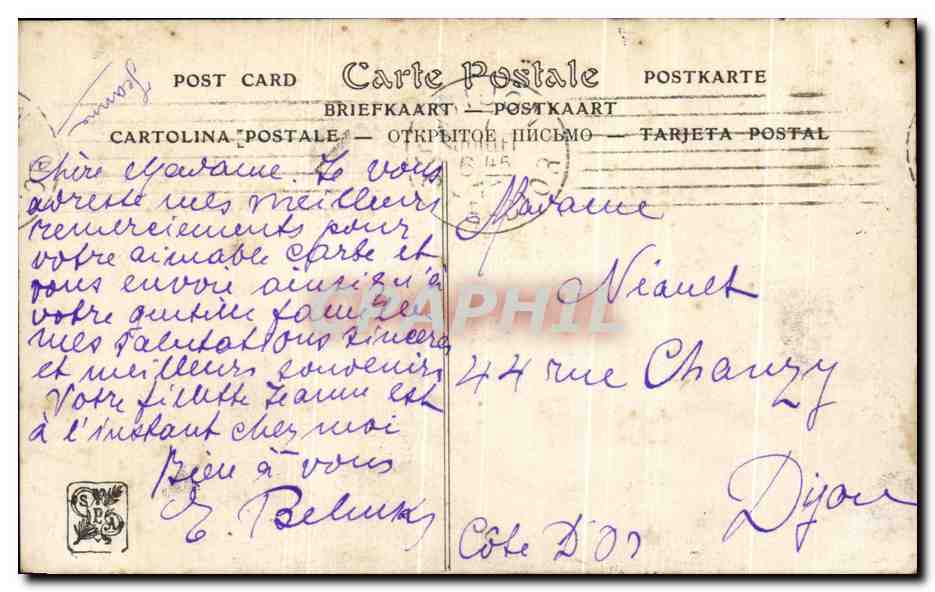 POST CARD Carte Postale POSTKARTE
BRIEFKAART — POSTKAART
CARTOLINA POSTALE — ОТКРЫТОЕ ПИСЬМО — TARJETA POSTAL
Jeanne
Chère Madame. Je vous
adresse mes meilleurs
remerciements pour
votre aimable carte et
vous envoie ainsi qu'à
votre gentille famille
mes salutations sincères
et meilleurs souvenirs
Votre fillette Jeanne est
à l'instant chez moi
Bien à vous
E.
Madame
44 rue Chanzy
Dijon
Côte D'Or
CPAPHIL